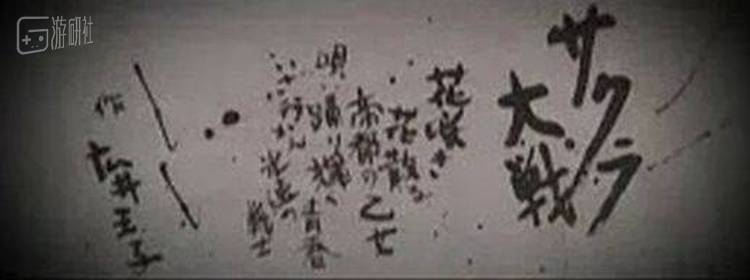 サクラ
大戦
花咲き
花散る
帝都の乙女
唄 踊り 青春
いざ行かん 光武の
戦士
作 広井王子
游研社